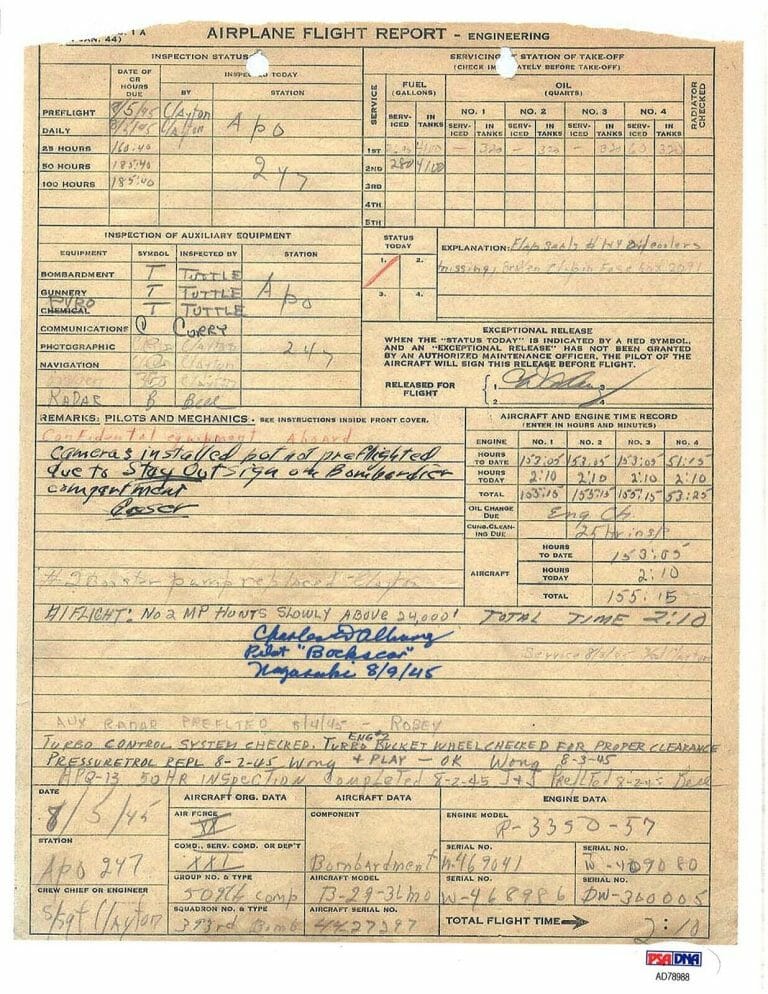 1 A
AN. 44)
AIRPLANE FLIGHT REPORT - ENGINEERING
INSPECTION STATUS
DATE OF OR HOURS DUE
INSPECTED TODAY
BY
STATION
PREFLIGHT 8/5/45 Clayton
DAILY 8/6/45 Clayton
Apo
25 HOURS 160:40
50 HOURS 185:40
247
100 HOURS 185:40
SERVICING STATION OF TAKE-OFF
(CHECK IMMEDIATELY BEFORE TAKE-OFF)
SERVICE
FUEL (GALLONS)
OIL (QUARTS)
RADIATOR CHECKED
SERV-ICED IN TANKS
NO. 1 NO. 2 NO. 3 NO. 4
SERV-ICED IN TANKS SERV-ICED IN TANKS SERV-ICED IN TANKS SERV-ICED IN TANKS
1ST 4100 — 320 — 320 — 320 60 320
2ND 280 4100
3RD
4TH
5TH
INSPECTION OF AUXILIARY EQUIPMENT
EQUIPMENT SYMBOL INSPECTED BY STATION
BOMBARDMENT T TUTTLE
GUNNERY T TUTTLE Apo
PYRO
CHEMICAL T TUTTLE
COMMUNICATIONS CURRY
PHOTOGRAPHIC 247
NAVIGATION
RADAR B Bell
STATUS TODAY
1. 2.
3. 4.
EXPLANATION: Flap seals # 1+4 oil coolers
missing,
EXCEPTIONAL RELEASE
WHEN THE "STATUS TODAY" IS INDICATED BY A RED SYMBOL,
AND AN "EXCEPTIONAL RELEASE" HAS NOT BEEN GRANTED
BY AN AUTHORIZED MAINTENANCE OFFICER, THE PILOT OF THE
AIRCRAFT WILL SIGN THIS RELEASE BEFORE FLIGHT.
RELEASED FOR FLIGHT
1 3
2 4
REMARKS: PILOTS AND MECHANICS - SEE INSTRUCTIONS INSIDE FRONT COVER.
Confidental equipment Aboard
Cameras installed but not preflighted
due to Stay Out Sign on Bombardier
compartment
#2 Booster pump replaced - Clayton
AIRCRAFT AND ENGINE TIME RECORD
(ENTER IN HOURS AND MINUTES)
ENGINE NO. 1 NO. 2 NO. 3 NO. 4
HOURS TO DATE 153:05 153:05 153:05 51:15
HOURS TODAY 2:10 2:10 2:10 2:10
TOTAL 155:15 155:15 155:15 53:25
OIL CHANGE DUE Eng Ch.
CUNO.CLEANING DUE 25 hr insp
AIRCRAFT
HOURS TO DATE 153:05
HOURS TODAY 2:10
TOTAL 155:15
A/FLIGHT: NO 2 MP HUNTS SLOWLY ABOVE 24,000' TOTAL TIME 2:10
Charles D Albury
Pilot "Bockscar"
Nagasaki 8/9/45
AUX RADAR PREFLTED 8/4/45 - ROBEY
TURBO CONTROL SYSTEM CHECKED. TURBO ENG#2 BUCKET WHEEL CHECKED FOR PROPER CLEARANCE
PRESSURETROL REPL 8-2-45 Wong + PLAY - OK Wong 8-3-45
APQ-13 50HR INSPECTION completed 8-2-45 J+J Preflted 8-2-45 Bell
DATE
8/5/45
STATION
Apo 247
CREW CHIEF OR ENGINEER
S/Sgt Clayton
AIRCRAFT ORG. DATA
AIR FORCE
XX
COMD., SERV. COMD. OR DEP'T
XXI
GROUP NO. & TYPE
509th comp
SQUADRON NO. & TYPE
393rd Bomb
AIRCRAFT DATA
COMPONENT
Bombardment
AIRCRAFT MODEL
B-29-36mo
AIRCRAFT SERIAL NO.
4427297
ENGINE DATA
ENGINE MODEL
R-3350-57
SERIAL NO. SERIAL NO.
W-469041 W-469080
SERIAL NO. SERIAL NO.
W-468986 DW-360005
TOTAL FLIGHT TIME 2:10
PSA DNA
AD78988